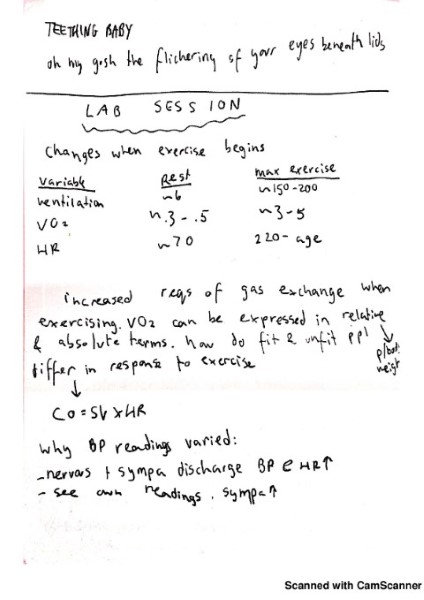 TEETHING BABY
oh my gosh the flickering of your eyes beneath lids
LAB SESSION
Changes when exercise begins
Variable Rest max exercise
ventilation ~6 ~150-200
VO2 ~.3-.5 ~3-5
HR ~70 220-age
increased reqs of gas exchange when
exercising. VO2 can be expressed in relative
& absolute terms. how do fit & unfit ppl
differ in response to exercise
CO = SV x HR
why BP readings varied:
- nervous & sympa discharge BP HR↑
- see own readings. sympa↑
Scanned with CamScanner